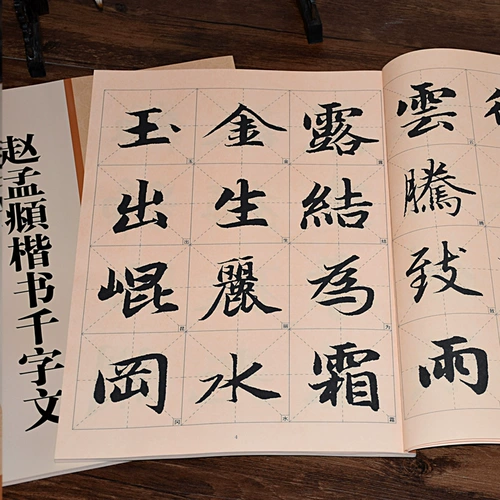 雲騰致雨
露結為霜
金生麗水
玉出崐岡
4
赵孟頫楷书千字文